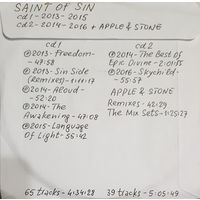 SAINT OF SIN
cd1 - 2013 - 2015
cd2 - 2014 - 2016 + APPLE & STONE
cd1
℗2013-Freedom-
47:58
℗2013-Sin Side
(Remixes)-
℗2014-Aloud-
52:20
℗2014-The
Awakening-47:08
℗2015-Language
Of Light-55:42
65 tracks-4:34:28
cd2
℗2014-The Best of
Epic Divine-2:01:55
℗2016-Skychild-
55:57
APPLE & STONE
(Remixes-42:29
The Mix Sets-1:25:27
39 tracks-5:05:49